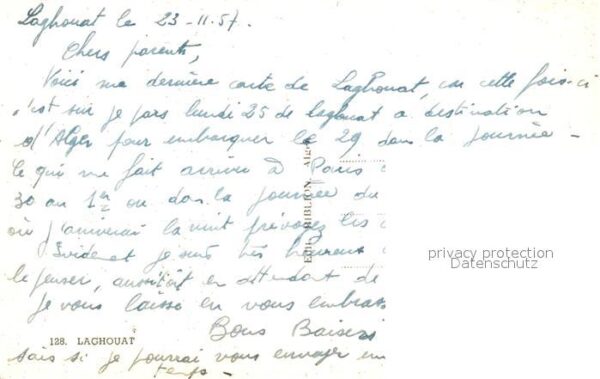 Laghouat le 23-11.57.
Chers parents,
Voici ma dernière carte de Laghouat, car cette fois-ci
c'est sur je pars lundi 25 de laghouat a destination
d'Alger pour embarquer le 29 dans la journée -
Ce qui me fait arriver à Paris
30 au 1er ou dans la journée du
où j'arriverai la nuit prévoyez
Evidemet je suis très heureux
le penser, aussitôt en attendant de
je vous laisse en vous embrass
Bons Baisers
128. LAGHOUAT
sais si je pourrai vous envoyer un
temps -
EDIT. Alger
privacy protection
Datenschutz